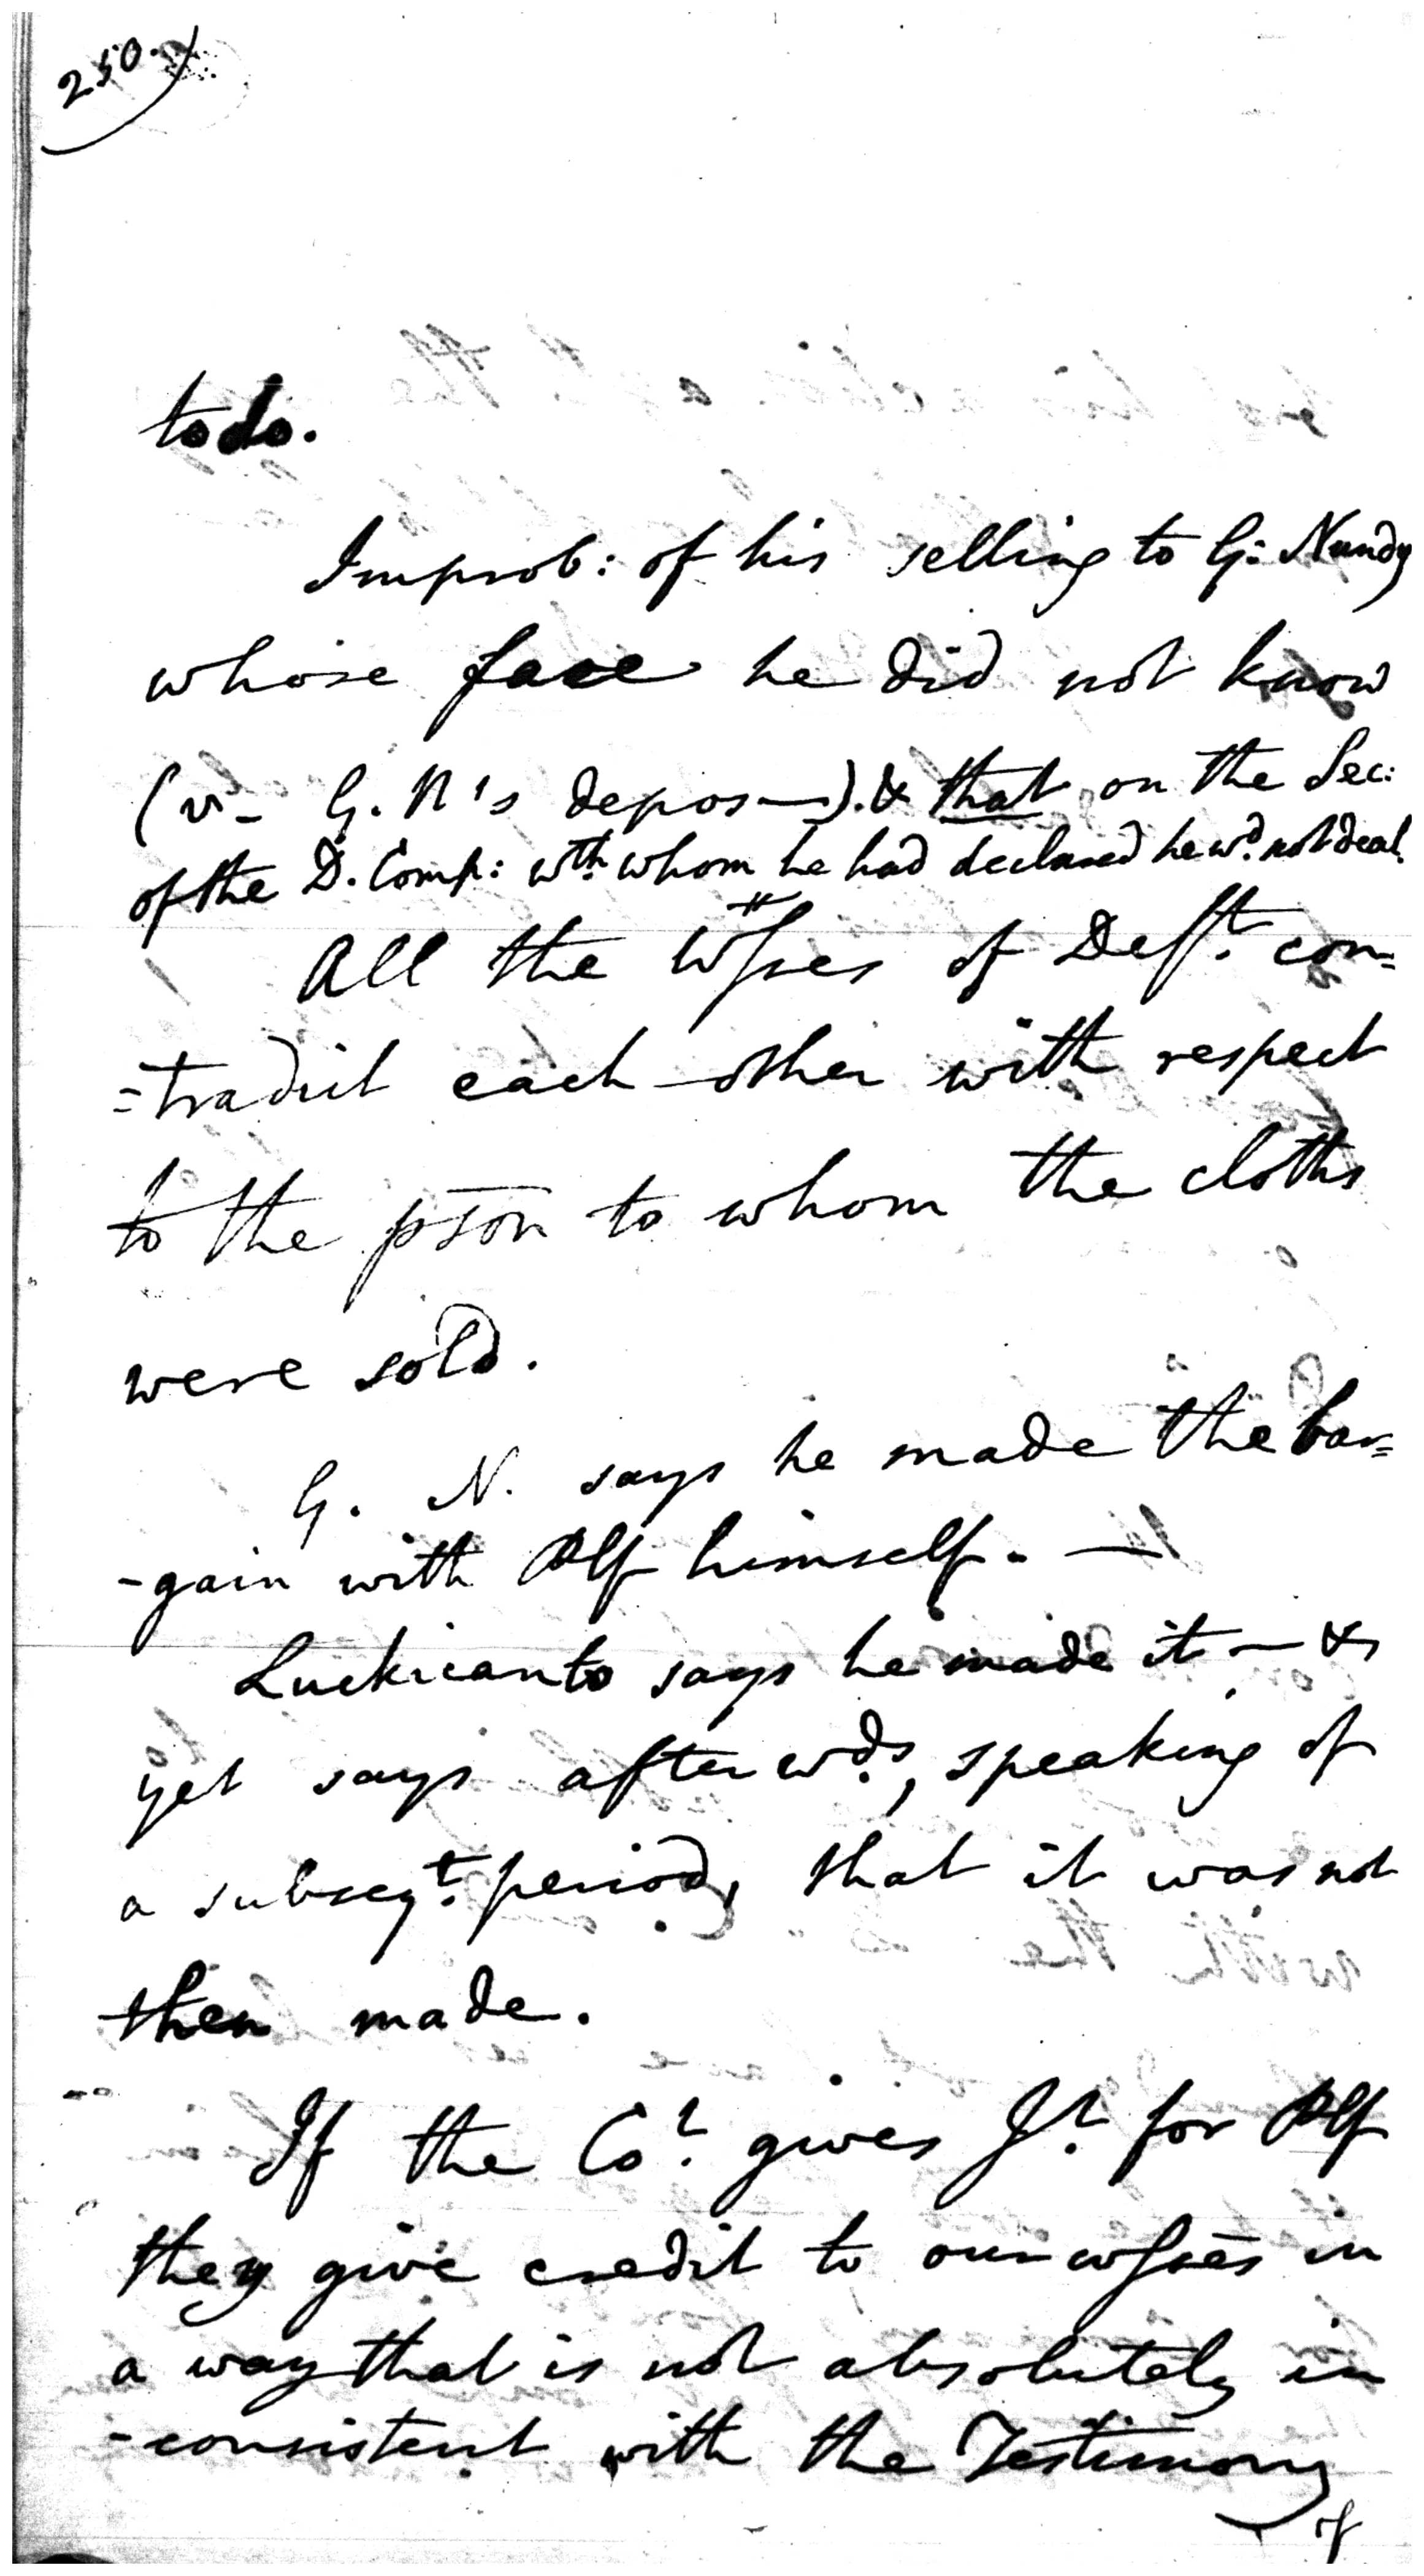 250.
to do.
Improb: of his selling to G: Nundy
whose face he did not know
(v- G. N's depos—). & that on the Sec:
of the D. Comp: wth. whom he had declared he wd. not deal.
All the Wsses of Defft. con=
=tradict each other with respect
to the pson to whom the cloths
were sold.
G. N. says he made the bar=
-gain with Plf himself. —
Luckicanto says he made it — &
yet says afterwds, speaking of
a subseqt. period, that it was not
then made.
If the Cot. gives Jt. for Plf
they give credit to our wsses in
a way that is not absolutely in
-consistent with the Testimony
of